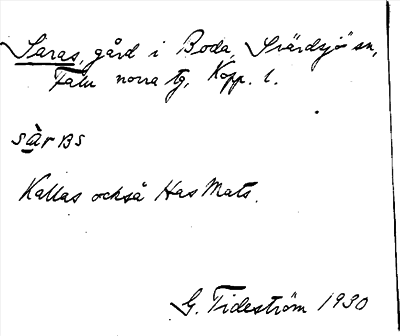 Saras, gård i Boda, Svärdsjö sn,
Falu norra tg, Kopp. l.
sàrʙs
Kallas också Has Mats.
G. Tideström 1930